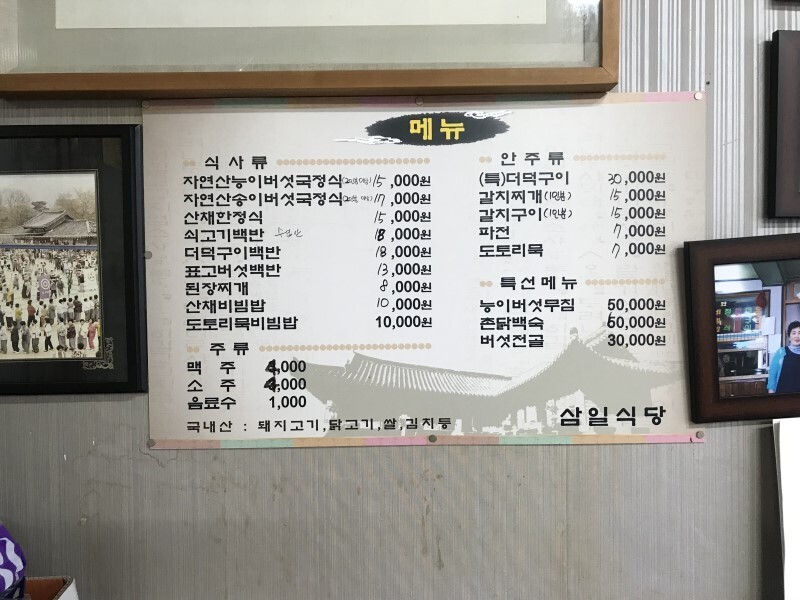 메뉴
식사류
자연산능이버섯국정식 15,000원
자연산송이버섯국정식 17,000원
산채한정식 15,000원
쇠고기백반 18,000원
더덕구이백반 18,000원
표고버섯백반 13,000원
된장찌개 8,000원
산채비빔밥 10,000원
도토리묵비빔밥 10,000원
주류
맥주 4,000
소주 4,000
음료수 1,000
안주류
(특)더덕구이 30,000원
갈치찌개(1인분) 15,000원
갈치구이(1인분) 15,000원
파전 7,000원
도토리묵 7,000원
특선메뉴
능이버섯무침 50,000원
촌닭백숙 60,000원
버섯전골 30,000원
국내산 : 돼지고기,닭고기,쌀,김치등
삼일식당